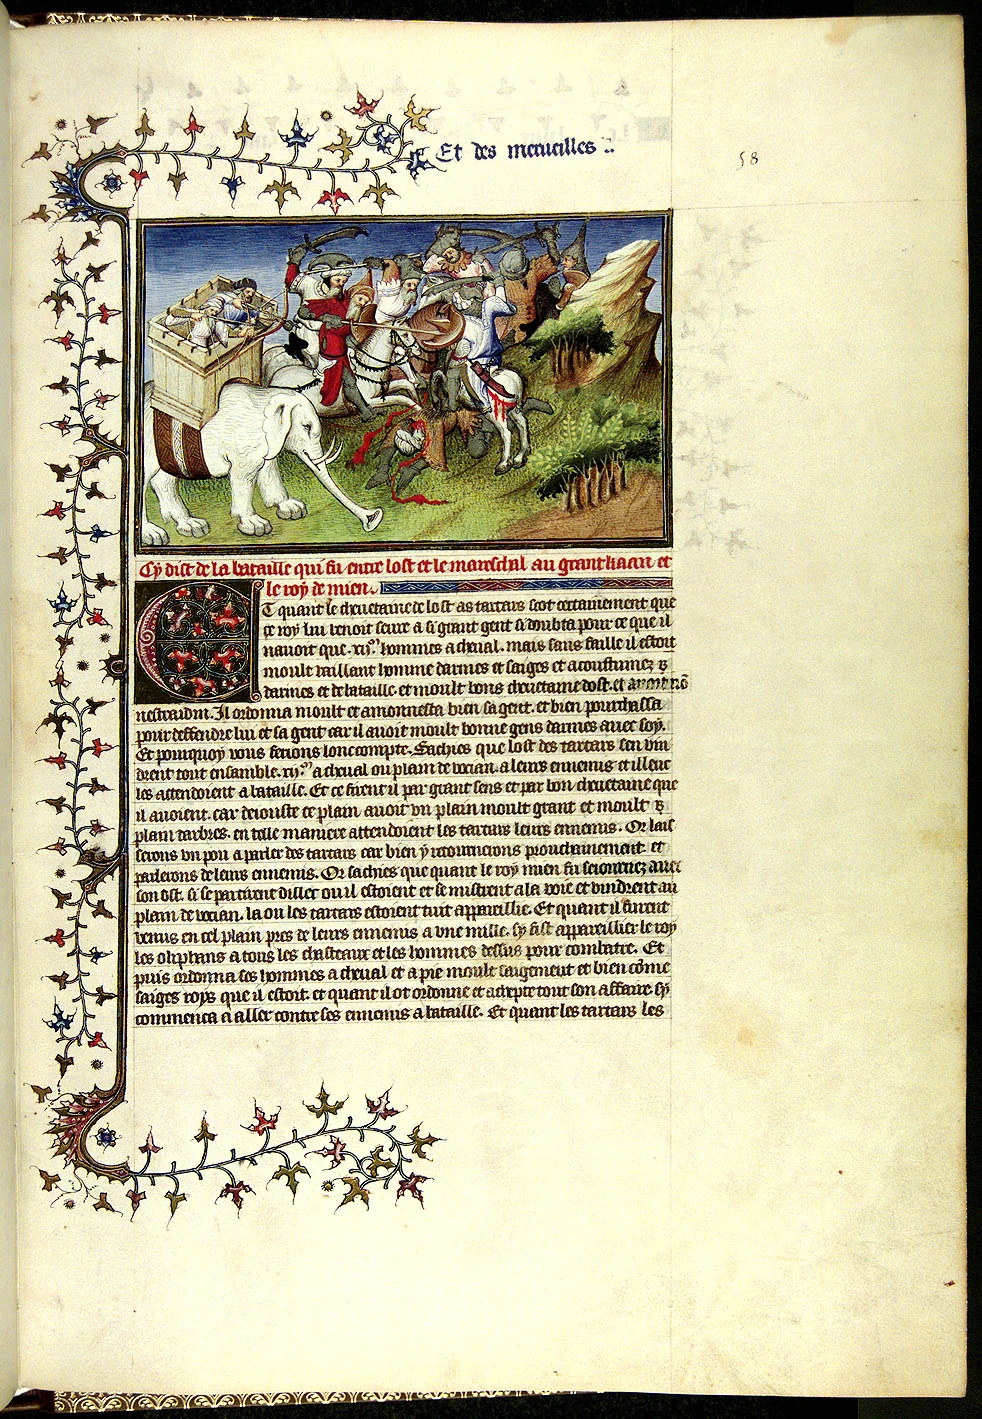 Et des merueilles
58
Cy dist de la bataille qui fu entre lost et le mareschal au grant kaan et
le roy de mien.
Et quant le cheuetaine de lost as tartars scot certainement que
ce roy lui uenoit seure a si grant gent si doubta pour ce que il
nauoit que .xij.m hommes a cheual. mais sans faille il estoit
moult uaillant homme darmes et saiges et acoustumez
darmes et de bataille. et moult bons cheuetaine dost. et auoit nō
nestraidin. Il ordonna moult et amonnesta bien sa gent. et bien pourchassa
pour deffendre lui et sa gent car il auoit moult bonne gens darmes auec soy.
Et pourquoy vous feroies lonc compte. Sachies que lost des tartars sen vin
drent tout ensamble .xij.m a cheual ou plain de vocian. a leurs ennemis et illeuc
les attendoient a bataille. Et ce firent il par grant sens et par bon cheuetaine que
il auoient. car deiouste ce plain auoit vn plain moult grant et moult
plain darbres. en telle maniere attendoient les tartars leurs ennemis. Or lais
serons vn pou a parler des tartars car bien y retournerons prouchainement et
parlerons de leurs ennemis. Or sachies que quant le roy mien fu seiournez auec
son ost. si se partirent dillec ou il estoient et se mistrent a la voie et vindrent au
plain de vocian. la ou les tartars estoient tuit appareillie. Et quant il furent
venus en cel plain pres de leurs ennemis a vne mille. sy fist appareillier le roy
les oliphans a tous les chasteaux et les hommes dessus pour combatre. Et
puis ordonna ses hommes a cheual et a pie moult saigement et bien cōme
saiges roys que il estoit. et quant il ot ordonne et tout son affaire sy
commenca a aller contre ses ennemis a bataille. Et quant les tartars les